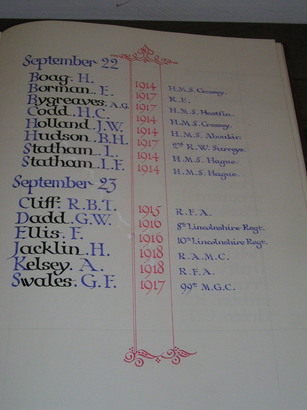 September 22
Boag. H. 1914 H.M.S. Cressy.
Borman. E. 1917 R.E.
Bygreaves. A.G. 1917
Codd. H.C. 1914 H.M.S. Cressy.
Holland. J.W. 1914 H.M.S. Aboukir.
Hudson. B.H. 1917 2nd R.W. Surreys.
Statham. I. 1914 H.M.S. Hogue.
Statham. L.F. 1914 H.M.S. Hogue.
September 23
Cliff. R.B.T. 1915 R.F.A.
Dadd. G.W. 1916 8th Lincolnshire Regt.
Ellis. F. 1916 10th Lincolnshire Regt.
Jacklin. H. 1918 R.A.M.C.
Kelsey. A. 1918 R.F.A.
Swales. G.F. 1917 99th M.G.C.